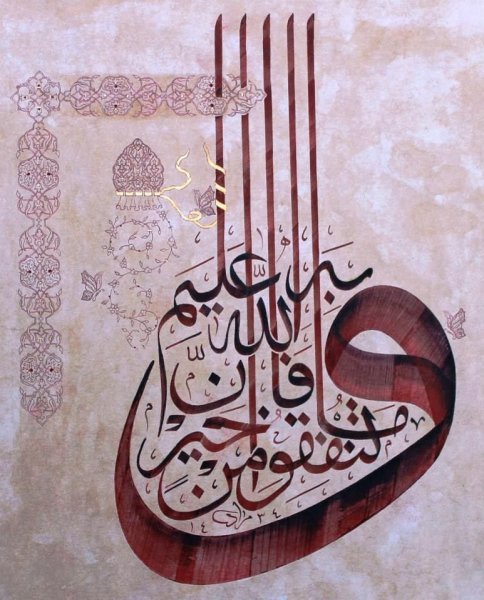 وما تنفقوا من خير
فإن
الله
به عليم
١٤ ٣٤